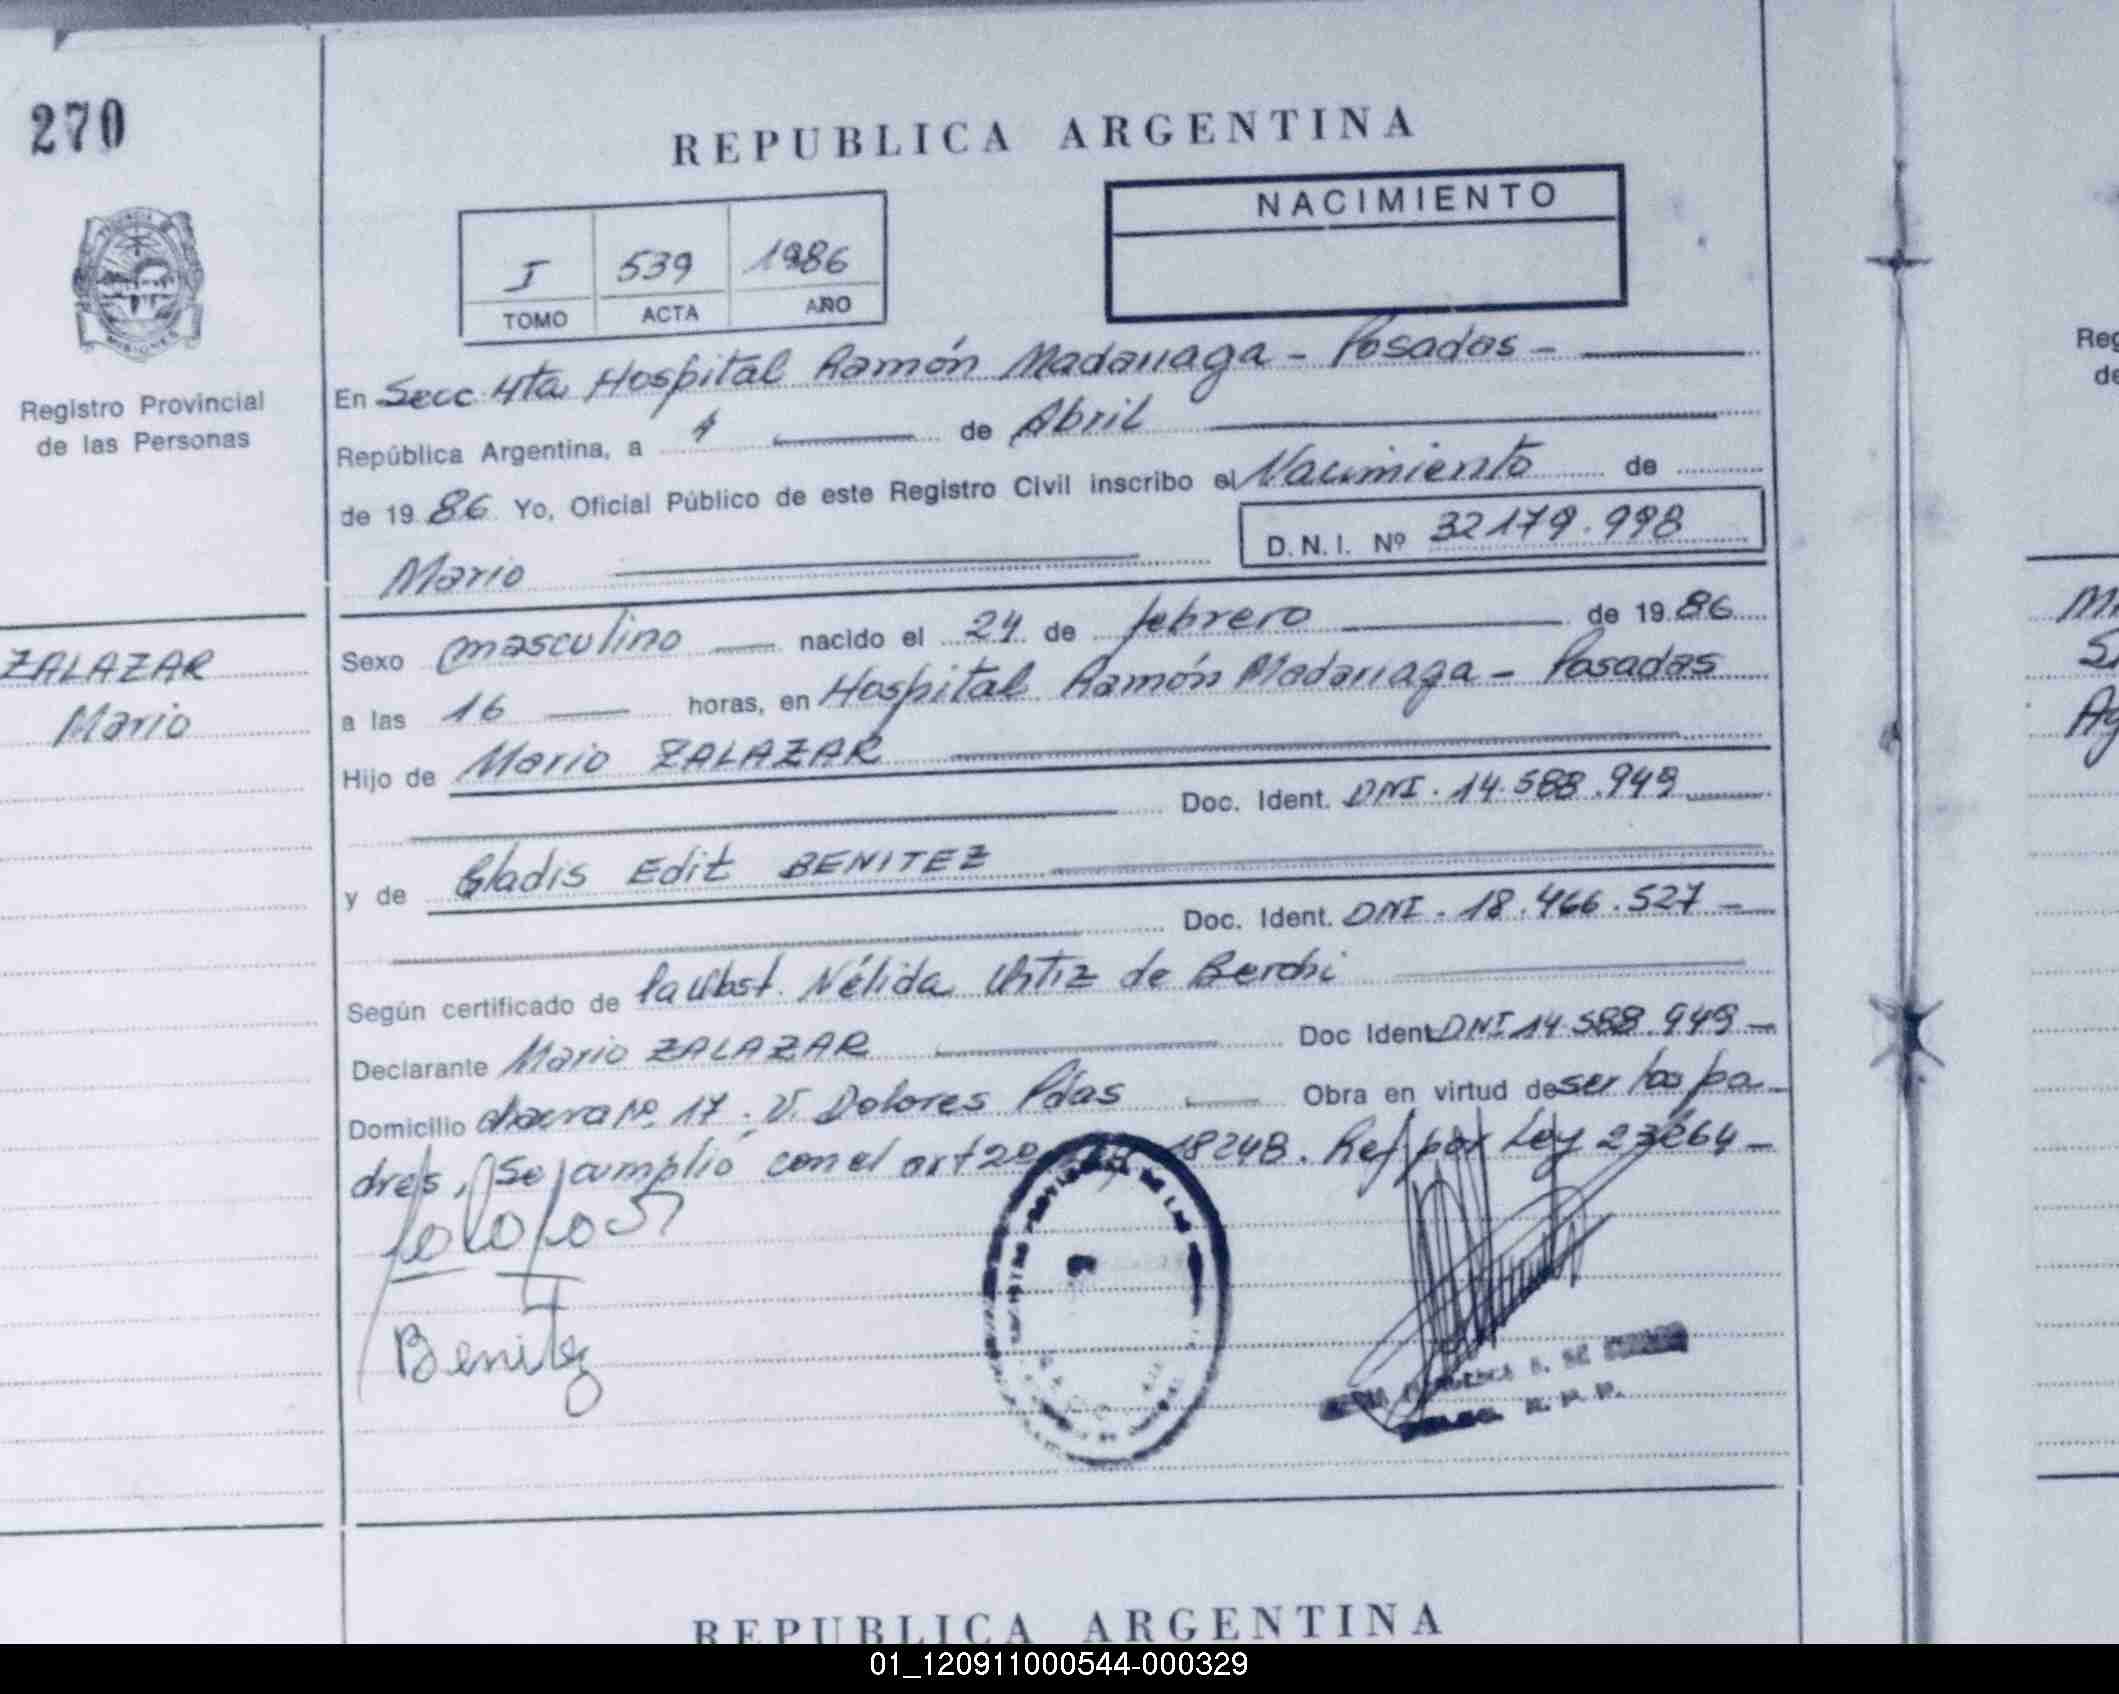 270
REPUBLICA ARGENTINA
NACIMIENTO
I 539 1986
TOMO ACTA AÑO
Registro Provincial
de las Personas
MISIONES
En Secc 4ta Hospital Ramón Madariaga - Posadas -
República Argentina, a 1 de Abril
de 1986 Yo, Oficial Público de este Registro Civil inscribo el Nacimiento de
Mario D.N.I. Nº 32179.998
ZALAZAR
Mario
Sexo masculino nacido el 24 de febrero de 1986
a las 16 horas, en Hospital Ramón Madariaga - Posadas
Hijo de Mario ZALAZAR
Doc. Ident. DNI. 14.588.949
y de Gladis Edit BENITEZ
Doc. Ident. DNI. 18.466.527 -
Según certificado de la Obst. Nélida Ortiz de Berchi
Declarante Mario ZALAZAR Doc Ident DNI 14 588.949 -
Domicilio chacra Nº 17. V. Dolores Pdas Obra en virtud de ser los pa-
dres, Se cumplió con el art 2º 18248. Ref por Ley 23264 -
Benitez
R. P. P.
Reg
de
REPUBLICA ARGENTINA
01_120911000544-000329